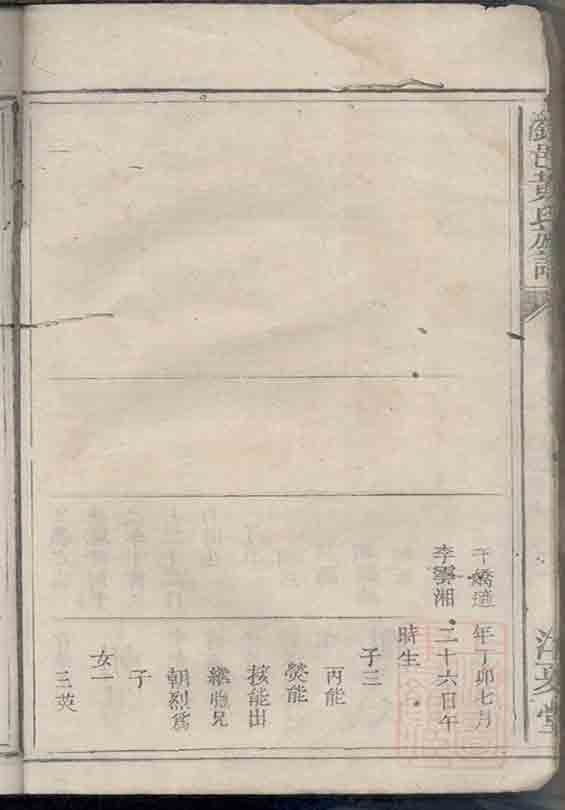 黃氏族譜
江夏堂
適
李雲湘
年丁卯七月
二十六日午
時生
子三
丙能
熒能
核能出
繼胞兄
朝烈爲
子
女一
三英